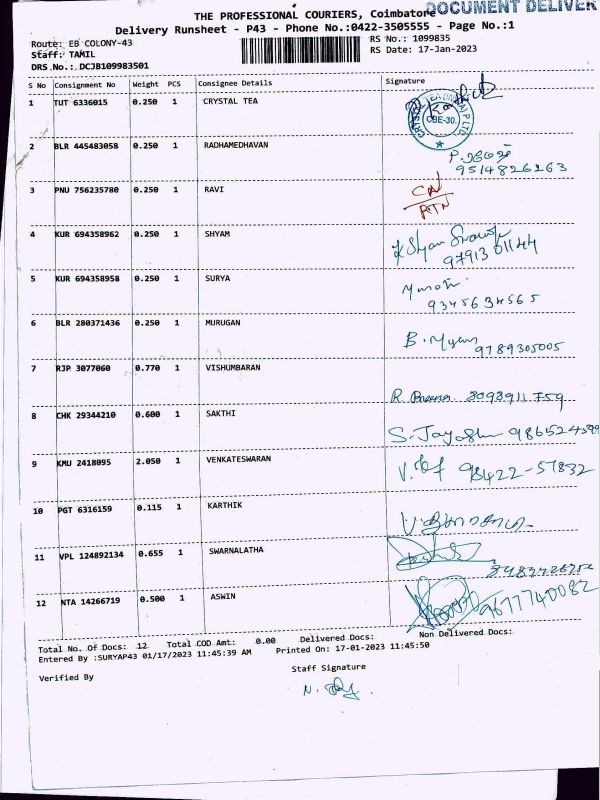 DOCUMENT DELIVER
THE PROFESSIONAL COURIERS, Coimbatore
Delivery Runsheet - P43 - Phone No.:0422-3505555 - Page No.:1
Route: EB COLONY-43 RS No.: 1099835
Staff: TAMIL RS Date: 17-Jan-2023
DRS No.: DCJB109983501
S No Consignment No Weight PCS Consignee Details Signature
1 TUT 6336015 0.250 1 CRYSTAL TEA
CBE-30.
2 BLR 445483058 0.250 1 RADHAMEDHAVAN
9514826263
3 PNU 756235780 0.250 1 RAVI
CN
RTN
4 KUR 694358962 0.250 1 SHYAM
9791301144
5 KUR 694358958 0.250 1 SURYA
9345634565
6 BLR 280371436 0.250 1 MURUGAN
9789305005
7 RJP 3077060 0.770 1 VISHUMBARAN
8098911759
8 CHK 29344210 0.600 1 SAKTHI
9 KMU 2418095 2.050 1 VENKATESWARAN
98422-57832
10 PGT 6316159 0.115 1 KARTHIK
11 VPL 124892134 0.655 1 SWARNALATHA
12 NTA 14266719 0.500 1 ASWIN
9677740082
Total No. Of Docs: 12 Total COD Amt: 0.00 Delivered Docs: Non Delivered Docs:
Entered By :SURYAP43 01/17/2023 11:45:39 AM Printed On: 17-01-2023 11:45:50
Verified By Staff Signature